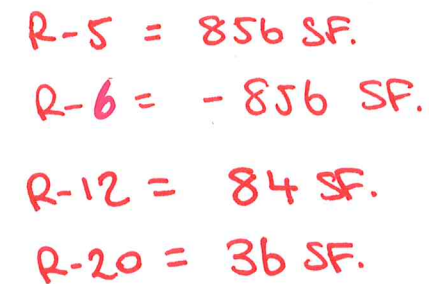 R-5 = 856 SF.
R-6 = - 856 SF.
R-12 = 84 SF.
R-20 = 36 SF.